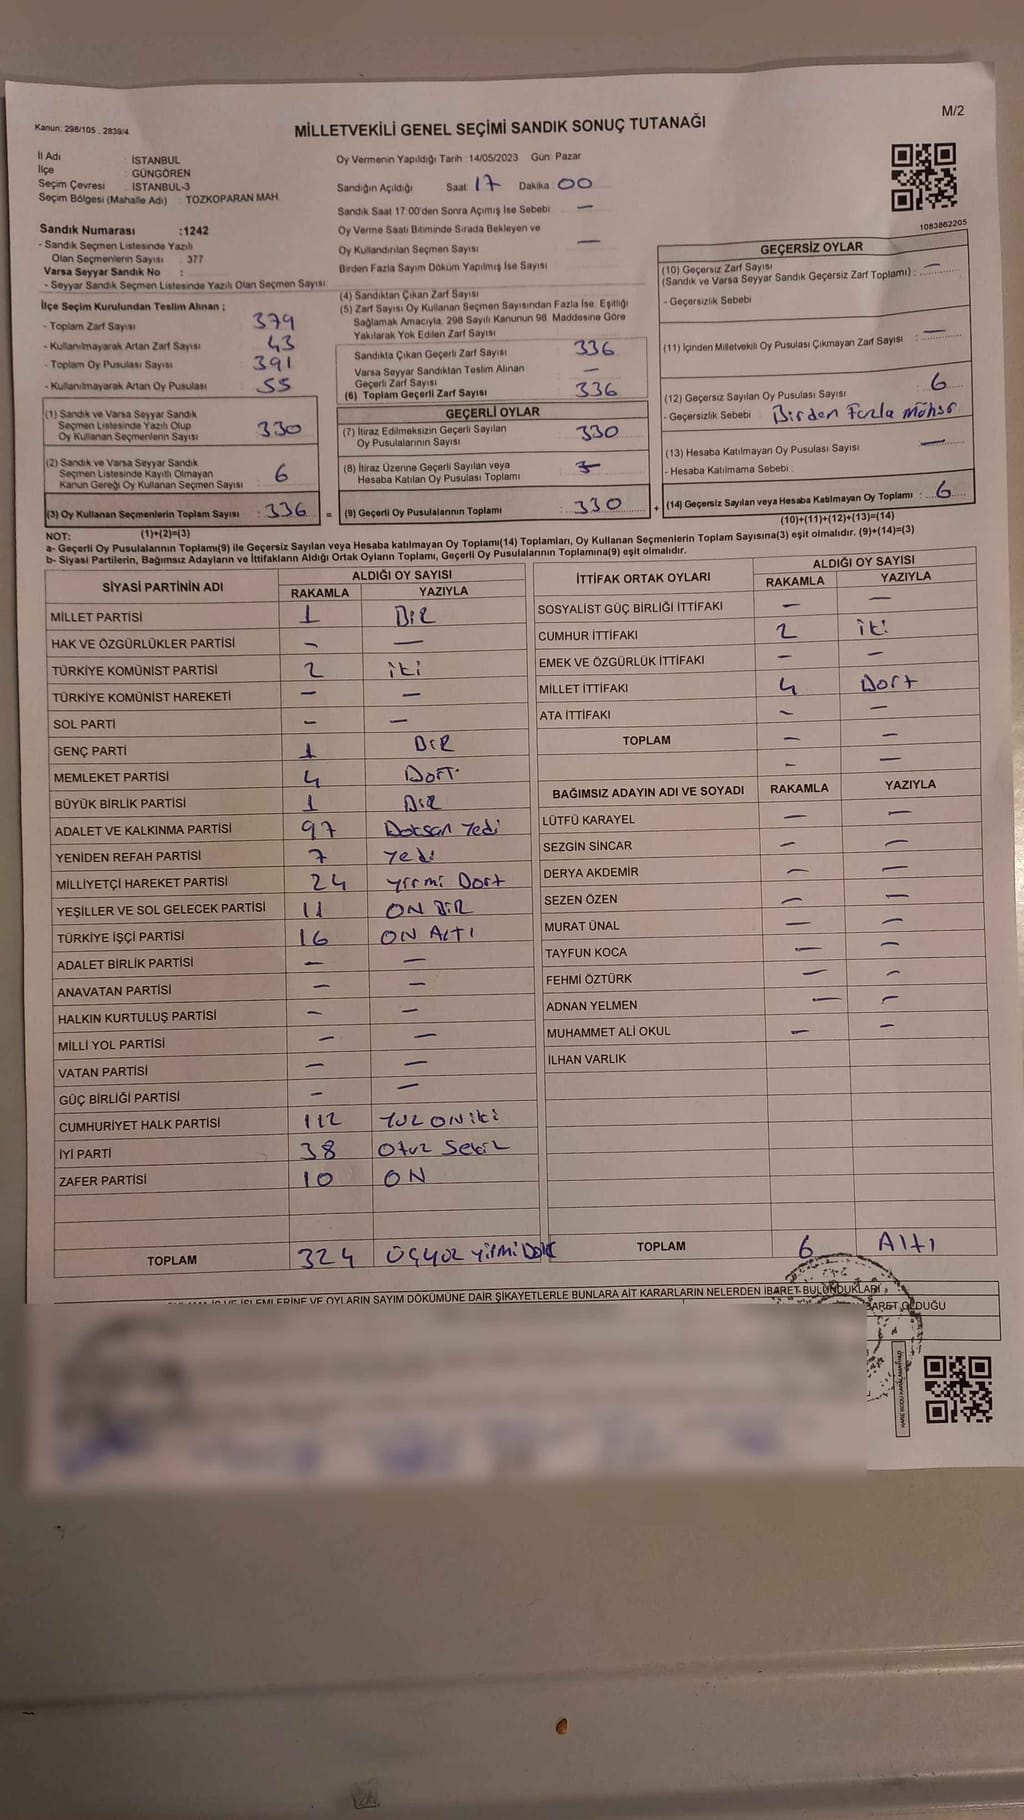 Kanun: 298/105 . 2839/4
M/2
MİLLETVEKİLİ GENEL SEÇİMİ SANDIK SONUÇ TUTANAĞI
İl Adı : İSTANBUL
İlçe : GÜNGÖREN
Seçim Çevresi : İSTANBUL-3
Seçim Bölgesi (Mahalle Adı) : TOZKOPARAN MAH
Sandık Numarası :1242
- Sandık Seçmen Listesinde Yazılı
Olan Seçmenlerin Sayısı : 377
Varsa Seyyar Sandık No :
- Seyyar Sandık Seçmen Listesinde Yazılı Olan Seçmen Sayısı :
Oy Vermenin Yapıldığı Tarih : 14/05/2023 Gün: Pazar
Sandığın Açıldığı Saat 17 Dakika 00
Sandık Saat 17:00'den Sonra Açımış İse Sebebi —
Oy Verme Saati Bitiminde Sırada Bekleyen ve
Oy Kullandırılan Seçmen Sayısı —
Birden Fazla Sayım Döküm Yapılmış İse Sayısı
1083862205
İlçe Seçim Kurulundan Teslim Alınan ;
- Toplam Zarf Sayısı 379
- Kullanılmayarak Artan Zarf Sayısı 43
- Toplam Oy Pusulası Sayısı 391
- Kullanılmayarak Artan Oy Pusulası 55
(1) Sandık ve Varsa Seyyar Sandık
Seçmen Listesinde Yazılı Olup
Oy Kullanan Seçmenlerin Sayısı : 330
(2) Sandık ve Varsa Seyyar Sandık
Seçmen Listesinde Kayıtlı Olmayan
Kanun Gereği Oy Kullanan Seçmen Sayısı : 6
(3) Oy Kullanan Seçmenlerin Toplam Sayısı : 336 =
(1)+(2)=(3)
(4) Sandıktan Çıkan Zarf Sayısı
(5) Zarf Sayısı Oy Kullanan Seçmen Sayısından Fazla İse, Eşitliği
Sağlamak Amacıyla, 298 Sayılı Kanunun 98. Maddesine Göre
Yakılarak Yok Edilen Zarf Sayısı
Sandıkta Çıkan Geçerli Zarf Sayısı 336
Varsa Seyyar Sandıktan Teslim Alınan
Geçerli Zarf Sayısı —
(6) Toplam Geçerli Zarf Sayısı 336
GEÇERLİ OYLAR
(7) İtiraz Edilmeksizin Geçerli Sayılan
Oy Pusulalarının Sayısı : 330
(8) İtiraz Üzerine Geçerli Sayılan veya
Hesaba Katılan Oy Pusulası Toplamı :
(9) Geçerli Oy Pusulalarının Toplamı : 330 +
GEÇERSİZ OYLAR
(10) Geçersiz Zarf Sayısı
(Sandık ve Varsa Seyyar Sandık Geçersiz Zarf Toplamı) : —
- Geçersizlik Sebebi
(11) İçinden Milletvekili Oy Pusulası Çıkmayan Zarf Sayısı : —
(12) Geçersiz Sayılan Oy Pusulası Sayısı : 6
- Geçersizlik Sebebi : Birden Fazla Mühür
(13) Hesaba Katılmayan Oy Pusulası Sayısı : —
- Hesaba Katılmama Sebebi :
(14) Geçersiz Sayılan veya Hesaba Katılmayan Oy Toplamı : 6
(10)+(11)+(12)+(13)=(14)
NOT:
a- Geçerli Oy Pusulalarının Toplamı(9) ile Geçersiz Sayılan veya Hesaba katılmayan Oy Toplamı(14) Toplamları, Oy Kullanan Seçmenlerin Toplam Sayısına(3) eşit olmalıdır. (9)+(14)=(3)
b- Siyasi Partilerin, Bağımsız Adayların ve İttifakların Aldığı Ortak Oyların Toplamı, Geçerli Oy Pusulalarının Toplamına(9) eşit olmalıdır.
SİYASİ PARTİNİN ADI ALDIĞI OY SAYISI
RAKAMLA YAZIYLA
MİLLET PARTİSİ 1 BİR
HAK VE ÖZGÜRLÜKLER PARTİSİ — —
TÜRKİYE KOMÜNİST PARTİSİ 2 iki
TÜRKİYE KOMÜNİST HAREKETİ — —
SOL PARTİ — —
GENÇ PARTİ 1 BİR
MEMLEKET PARTİSİ 4 DÖRT
BÜYÜK BİRLİK PARTİSİ 1 BİR
ADALET VE KALKINMA PARTİSİ 97 Doksan Yedi
YENİDEN REFAH PARTİSİ 7 Yedi
MİLLİYETÇİ HAREKET PARTİSİ 24 yirmi Dört
YEŞİLLER VE SOL GELECEK PARTİSİ 11 ON BİR
TÜRKİYE İŞÇİ PARTİSİ 16 ON ALTI
ADALET BİRLİK PARTİSİ — —
ANAVATAN PARTİSİ — —
HALKIN KURTULUŞ PARTİSİ — —
MİLLİ YOL PARTİSİ — —
VATAN PARTİSİ — —
GÜÇ BİRLİĞİ PARTİSİ — —
CUMHURİYET HALK PARTİSİ 112 YÜZ ONİKİ
İYİ PARTİ 38 Otuz Sekiz
ZAFER PARTİSİ 10 ON
TOPLAM 324 ÜÇYÜZ YİRMİ DÖRT
İTTİFAK ORTAK OYLARI ALDIĞI OY SAYISI
RAKAMLA YAZIYLA
SOSYALİST GÜÇ BİRLİĞİ İTTİFAKI — —
CUMHUR İTTİFAKI 2 iki
EMEK VE ÖZGÜRLÜK İTTİFAKI — —
MİLLET İTTİFAKI 4 Dört
ATA İTTİFAKI — —
TOPLAM — —
— —
BAĞIMSIZ ADAYIN ADI VE SOYADI RAKAMLA YAZIYLA
LÜTFÜ KARAYEL — —
SEZGİN SİNCAR — —
DERYA AKDEMİR — —
SEZEN ÖZEN — —
MURAT ÜNAL — —
TAYFUN KOCA — —
FEHMİ ÖZTÜRK — —
ADNAN YELMEN — —
MUHAMMET ALİ OKUL — —
İLHAN VARLIK
TOPLAM 6 Altı
İŞLEMLERİNE VE OYLARIN SAYIM DÖKÜMÜNE DAİR ŞİKAYETLERLE BUNLARA AİT KARARLARIN NELERDEN İBARET BULUNDUKLARI
İBARET OLDUĞU